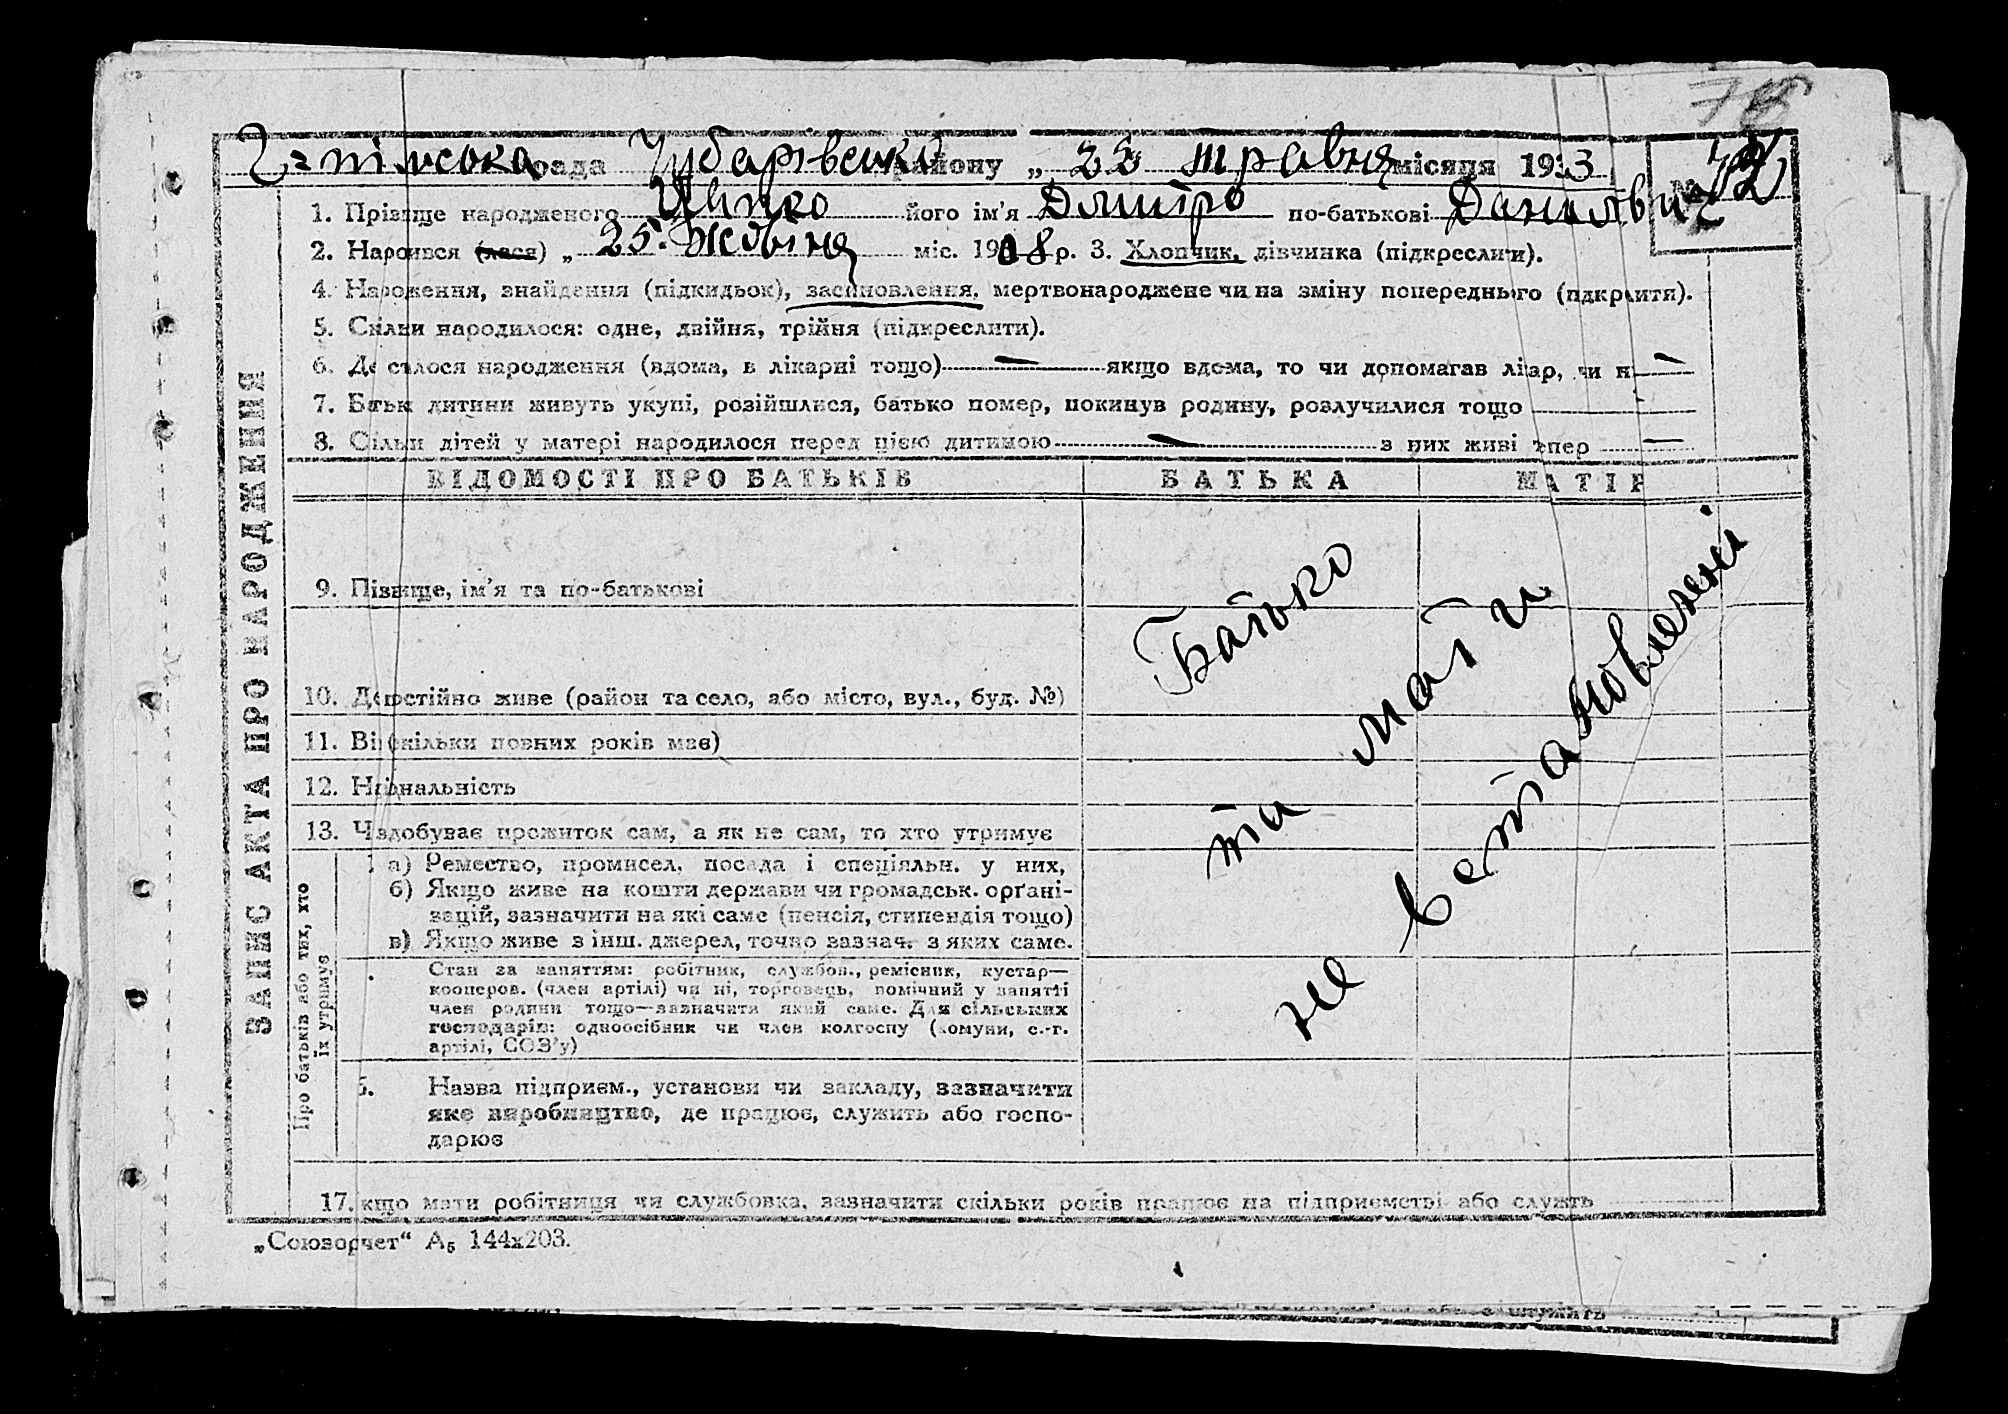 78
рада Чубарівського району „ 23 травня місяця 1933 № 72
1. Прізвище народженого його ім'я Дмитро по-батькові Данилович
2. Народився (лася) „ 25. Жовтня міс. 1908 р. 3. Хлопчик, дівчинка (підкреслити).
4. Народження, знайдення (підкидьок), засиновлення, мертвонароджене чи на зміну попереднього (підкрслити).
5. Скільки народилося: одне, двійня, трійня (підкреслити).
6. Де сталося народження (вдома, в лікарні тощо) — якщо вдома, то чи допомагав лікар, чи ні —
7. Батьки дитини живуть укупі, розійшлися, батько помер, покинув родину, розлучилися тощо
8. Скільки дітей у матері народилося перед цією дитиною — з них живі тепер —
ЗАПИС АКТА ПРО НАРОДЖЕННЯ
ВІДОМОСТІ ПРО БАТЬКІВ БАТЬКА МАТІР
9. Прізвище, ім'я та по-батькові
10. Де постійно живе (район та село, або місто, вул., буд. №)
11. Вік (скільки повних років має)
12. Національність
13. Чи здобуває прожиток сам, а як не сам, то хто утримує
Батько
та мати
не встановленні
Про батьків або тих, хто
їх утримує
а) Ремество, промисел, посада і спеціяльн. у них,
б) Якщо живе на кошти держави чи громадськ. орґані-
зацій, зазначити на які саме (пенсія, стипендія тощо)
в) Якщо живе з інш. джерел, точно зазнач. з яких саме.
Стан за заняттям: робітник, службов., ремісник, кустар—
кооперов. (член артілі) чи ні, торговець, помічний у занятті
член родини тощо—зазначити який саме. Для сільських
господарів: одноосібник чи член колгоспу (комуни, с.-г.
артілі, СОЗ'у)
Назва підприєм., установи чи закладу, зазначити
яке виробництво, де працює, служить або госпо-
дарює
17. Якщо мати робітниця чи службовка, зазначити скільки років працює на підприємстві або служить
„Союзоргчет“ А₅ 144х203.